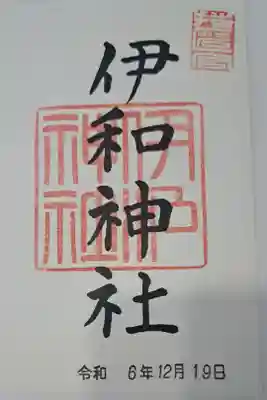 伊和神社
伊和
神社
令和 6年12月19日